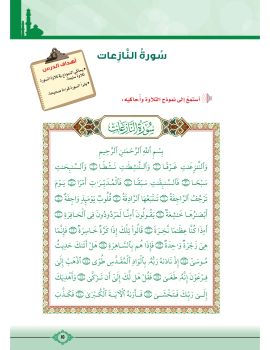 سُورَةُ النَّازِعَات
أهداف الدرس
استمعُ إلى نموذج التلاوة وأحاكيه:
سُورَةُ النَّازِعَاتِ
بِسْمِ اللَّهِ الرَّحْمَٰنِ الرَّحِيمِ
وَالنَّازِعَاتِ غَرْقًا ۝ وَالنَّاشِطَاتِ نَشْطًا ۝ وَالسَّابِحَاتِ
سَبْحًا ۝ فَالسَّابِقَاتِ سَبْقًا ۝ فَالْمُدَبِّرَاتِ أَمْرًا ۝ يَوْمَ
تَرْجُفُ الرَّاجِفَةُ ۝ تَتْبَعُهَا الرَّادِفَةُ ۝ قُلُوبٌ يَوْمَئِذٍ وَاجِفَةٌ ۝
أَبْصَارُهَا خَاشِعَةٌ ۝ يَقُولُونَ أَإِنَّا لَمَرْدُودُونَ فِي الْحَافِرَةِ ۝
أَإِذَا كُنَّا عِظَامًا نَّخِرَةً ۝ قَالُوا تِلْكَ إِذًا كَرَّةٌ خَاسِرَةٌ ۝ فَإِنَّمَا
هِيَ زَجْرَةٌ وَاحِدَةٌ ۝ فَإِذَا هُم بِالسَّاهِرَةِ ۝ هَلْ أَتَاكَ حَدِيثُ
مُوسَىٰ ۝ إِذْ نَادَاهُ رَبُّهُ بِالْوَادِ الْمُقَدَّسِ طُوًى ۝ اذْهَبْ إِلَىٰ
فِرْعَوْنَ إِنَّهُ طَغَىٰ ۝ فَقُلْ هَل لَّكَ إِلَىٰ أَن تَزَكَّىٰ ۝ وَأَهْدِيَكَ
إِلَىٰ رَبِّكَ فَتَخْشَىٰ ۝ فَأَرَاهُ الْآيَةَ الْكُبْرَىٰ ۝ فَكَذَّبَ